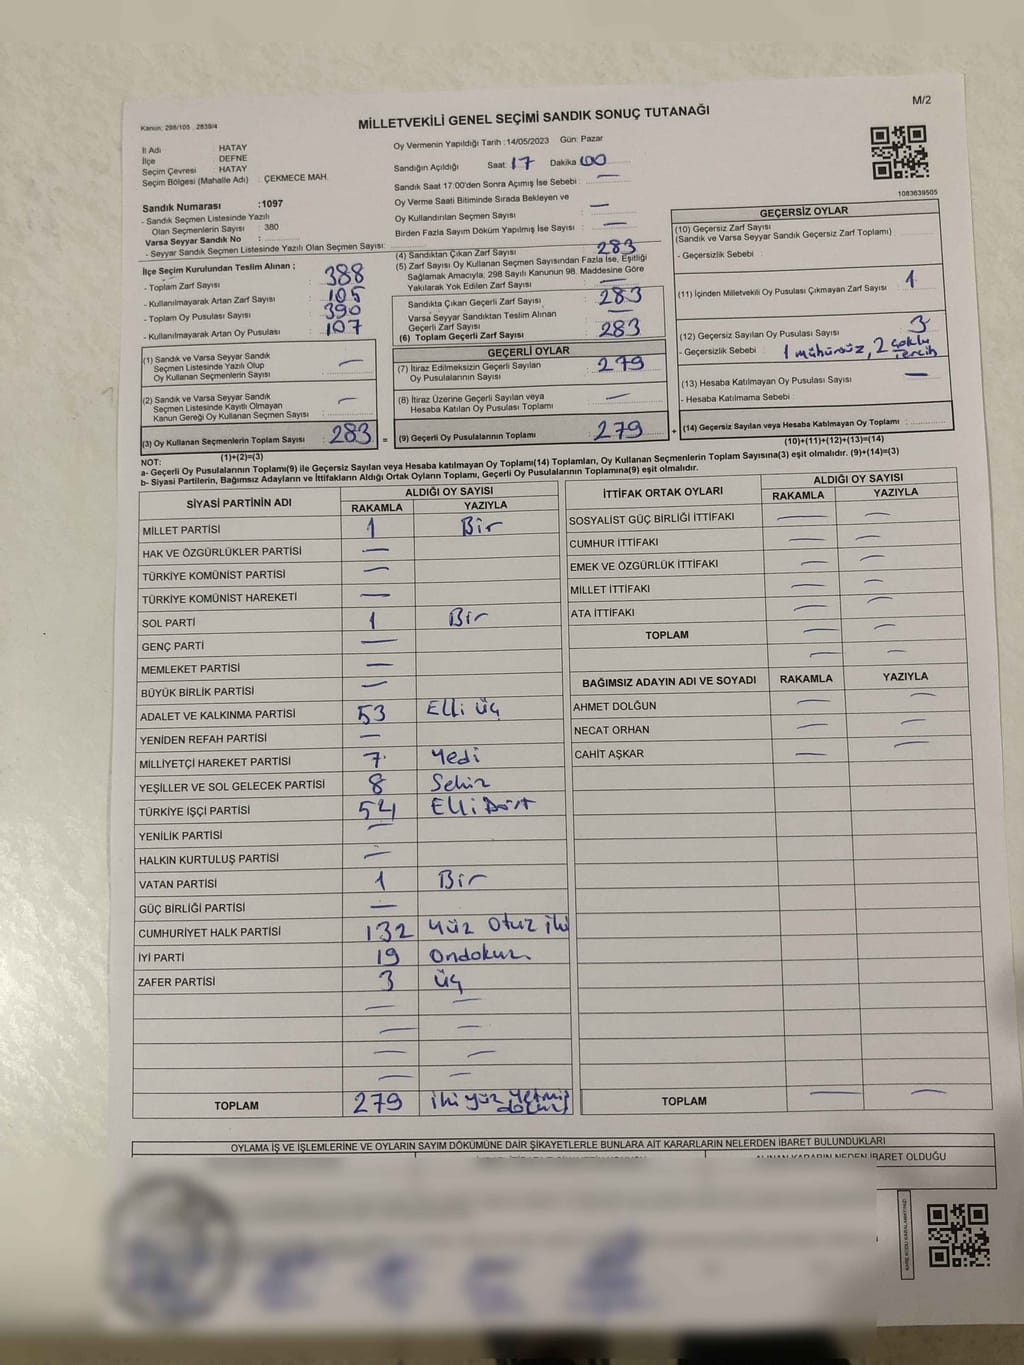 M/2
Kanun: 298/105 . 2839/4
MİLLETVEKİLİ GENEL SEÇİMİ SANDIK SONUÇ TUTANAĞI
İl Adı : HATAY
İlçe : DEFNE
Seçim Çevresi : HATAY
Seçim Bölgesi (Mahalle Adı) : ÇEKMECE MAH.
Oy Vermenin Yapıldığı Tarih :14/05/2023 Gün: Pazar
Sandığın Açıldığı Saat 17 Dakika 00
Sandık Saat 17:00'den Sonra Açımış İse Sebebi : —
Oy Verme Saati Bitiminde Sırada Bekleyen ve
Oy Kullandırılan Seçmen Sayısı : —
Birden Fazla Sayım Döküm Yapılmış İse Sayısı : —
1083639505
Sandık Numarası :1097
- Sandık Seçmen Listesinde Yazılı
Olan Seçmenlerin Sayısı : 380
Varsa Seyyar Sandık No :
- Seyyar Sandık Seçmen Listesinde Yazılı Olan Seçmen Sayısı:
İlçe Seçim Kurulundan Teslim Alınan ;
- Toplam Zarf Sayısı : 388
- Kullanılmayarak Artan Zarf Sayısı : 105
- Toplam Oy Pusulası Sayısı : 390
- Kullanılmayarak Artan Oy Pusulası : 107
(1) Sandık ve Varsa Seyyar Sandık
Seçmen Listesinde Yazılı Olup
Oy Kullanan Seçmenlerin Sayısı : —
(2) Sandık ve Varsa Seyyar Sandık
Seçmen Listesinde Kayıtlı Olmayan
Kanun Gereği Oy Kullanan Seçmen Sayısı : —
(3) Oy Kullanan Seçmenlerin Toplam Sayısı : 283 =
(1)+(2)=(3)
(4) Sandıktan Çıkan Zarf Sayısı : 283
(5) Zarf Sayısı Oy Kullanan Seçmen Sayısından Fazla İse, Eşitliği
Sağlamak Amacıyla, 298 Sayılı Kanunun 98. Maddesine Göre
Yakılarak Yok Edilen Zarf Sayısı : —
Sandıkta Çıkan Geçerli Zarf Sayısı : 283
Varsa Seyyar Sandıktan Teslim Alınan
Geçerli Zarf Sayısı : —
(6) Toplam Geçerli Zarf Sayısı : 283
GEÇERLİ OYLAR
(7) İtiraz Edilmeksizin Geçerli Sayılan
Oy Pusulalarının Sayısı : 279
(8) İtiraz Üzerine Geçerli Sayılan veya
Hesaba Katılan Oy Pusulası Toplamı : —
(9) Geçerli Oy Pusulalarının Toplamı : 279 +
GEÇERSİZ OYLAR
(10) Geçersiz Zarf Sayısı
(Sandık ve Varsa Seyyar Sandık Geçersiz Zarf Toplamı)
- Geçersizlik Sebebi :
(11) İçinden Milletvekili Oy Pusulası Çıkmayan Zarf Sayısı : 1
(12) Geçersiz Sayılan Oy Pusulası Sayısı : 3
- Geçersizlik Sebebi : 1 mühürsüz, 2 çoklu tercih
(13) Hesaba Katılmayan Oy Pusulası Sayısı : —
- Hesaba Katılmama Sebebi :
(14) Geçersiz Sayılan veya Hesaba Katılmayan Oy Toplamı :
(10)+(11)+(12)+(13)=(14)
NOT:
a- Geçerli Oy Pusulalarının Toplamı(9) ile Geçersiz Sayılan veya Hesaba katılmayan Oy Toplamı(14) Toplamları, Oy Kullanan Seçmenlerin Toplam Sayısına(3) eşit olmalıdır. (9)+(14)=(3)
b- Siyasi Partilerin, Bağımsız Adayların ve İttifakların Aldığı Ortak Oyların Toplamı, Geçerli Oy Pusulalarının Toplamına(9) eşit olmalıdır.
SİYASİ PARTİNİN ADI ALDIĞI OY SAYISI
RAKAMLA YAZIYLA
MİLLET PARTİSİ 1 Bir
HAK VE ÖZGÜRLÜKLER PARTİSİ —
TÜRKİYE KOMÜNİST PARTİSİ —
TÜRKİYE KOMÜNİST HAREKETİ —
SOL PARTİ 1 Bir
GENÇ PARTİ —
MEMLEKET PARTİSİ —
BÜYÜK BİRLİK PARTİSİ —
ADALET VE KALKINMA PARTİSİ 53 Elli üç
YENİDEN REFAH PARTİSİ —
MİLLİYETÇİ HAREKET PARTİSİ 7 Yedi
YEŞİLLER VE SOL GELECEK PARTİSİ 8 Sekiz
TÜRKİYE İŞÇİ PARTİSİ 54 Elli Dört
YENİLİK PARTİSİ —
HALKIN KURTULUŞ PARTİSİ —
VATAN PARTİSİ 1 Bir
GÜÇ BİRLİĞİ PARTİSİ —
CUMHURİYET HALK PARTİSİ 132 Yüz Otuz iki
İYİ PARTİ 19 Ondokuz
ZAFER PARTİSİ 3 Üç
— —
— —
— —
— —
TOPLAM 279 iki yüz Yetmiş dokuz
İTTİFAK ORTAK OYLARI ALDIĞI OY SAYISI
RAKAMLA YAZIYLA
SOSYALİST GÜÇ BİRLİĞİ İTTİFAKI — —
CUMHUR İTTİFAKI — —
EMEK VE ÖZGÜRLÜK İTTİFAKI — —
MİLLET İTTİFAKI — —
ATA İTTİFAKI — —
TOPLAM — —
— —
BAĞIMSIZ ADAYIN ADI VE SOYADI RAKAMLA YAZIYLA
AHMET DOLĞUN — —
NECAT ORHAN — —
CAHİT AŞKAR — —
TOPLAM — —
OYLAMA İŞ VE İŞLEMLERİNE VE OYLARIN SAYIM DÖKÜMÜNE DAİR ŞİKAYETLERLE BUNLARA AİT KARARLARIN NELERDEN İBARET BULUNDUKLARI
ALINAN KARARIN NEDEN İBARET OLDUĞU